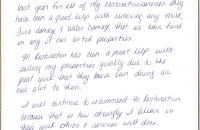 last year for all of my restoration services they
have been a great help with removing any mold,
fire damage & water damage that we have found
in any of our listed properties.
All Restoration has been a great help with
selling my properties quickly due to the
great work that they have been doing we
are able to them.
I will continue to recommend All Restoration
because that is how strongly I believe in
their work ethics & services well done.